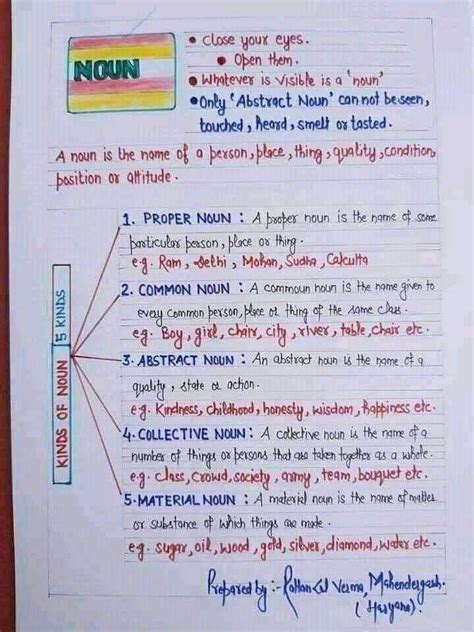 NOUN
• Close your eyes.
• Open them.
• Whatever is visible is a 'noun'
• Only 'Abstract Noun' can not be seen,
touched, heard, smelt or tasted.
A noun is the name of a person, place, thing, quality, condition,
position or attitude.
KINDS OF NOUN 5 KINDS
1. PROPER NOUN : A proper noun is the name of some
particular person, place or thing.
e.g. Ram, Delhi, Mohan, Sudha, Calcutta
2. COMMON NOUN : A commoun noun is the name given to
every common person, place or thing of the same class.
e.g. Boy, girl, chair, city, river, table, chair etc.
3. ABSTRACT NOUN : An abstract noun is the name of a
quality, state or action.
e.g. Kindness, childhood, honesty, wisdom, happiness etc.
4. COLLECTIVE NOUN : A collective noun is the name of a
number of things or persons that are taken together as a whole.
e.g. class, crowd, society, army, team, bouquet etc.
5. MATERIAL NOUN : A material noun is the name of matter
or substance of which things are made.
e.g. sugar, oil, wood, gold, silver, diamond, water etc.
Prepared by :- Verma, Mahendergarh
(Haryana).